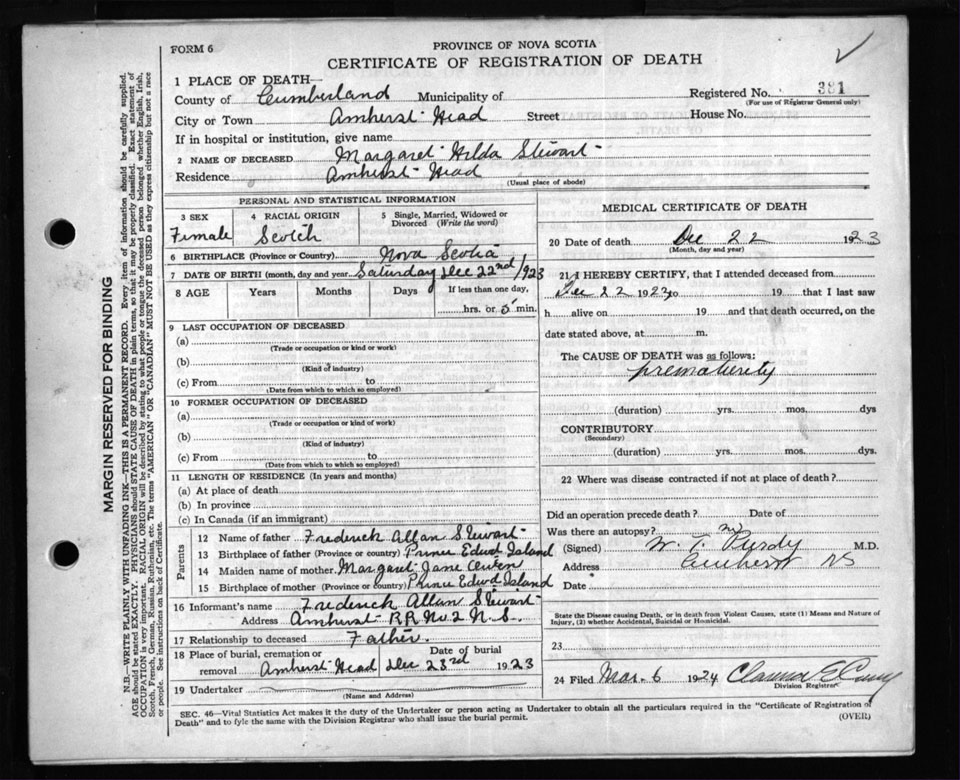 FORM 6
PROVINCE OF NOVA SCOTIA
CERTIFICATE OF REGISTRATION OF DEATH
1 PLACE OF DEATH—
County of Cumberland Municipality of
Registered No. 381
(For use of Registrar General only)
City or Town Amherst Head Street House No.
If in hospital or institution, give name
2 NAME OF DECEASED Margaret Hilda Stewart
Residence Amherst Head
(Usual place of abode)
PERSONAL AND STATISTICAL INFORMATION
3 SEX
Female
4 RACIAL ORIGIN
Scotch
5 Single, Married, Widowed or Divorced (Write the word)
6 BIRTHPLACE (Province or Country) Nova Scotia
7 DATE OF BIRTH (month, day and year) Saturday Dec 22nd/1923
8 AGE Years Months Days If less than one day,
hrs. or 5 min.
9 LAST OCCUPATION OF DECEASED
(a)
(Trade or occupation or kind or work)
(b)
(Kind of industry)
(c) From to
(Date from which to which so employed)
10 FORMER OCCUPATION OF DECEASED
(a)
(Trade or occupation or kind of work)
(b)
(Kind of industry)
(c) From to
(Date from which to which so employed)
11 LENGTH OF RESIDENCE (In years and months)
(a) At place of death
(b) In province
(c) In Canada (if an immigrant)
Parents
12 Name of father Frederick Allan Stewart
13 Birthplace of father (Province or country) Prince Edwd Island
14 Maiden name of mother Margaret Jane
15 Birthplace of mother (Province or country) Prince Edwd Island
16 Informant's name Frederick Allan Stewart
Address Amherst RR No 2 N.S.
17 Relationship to deceased Father.
18 Place of burial, cremation or removal Amherst Head
Date of burial
Dec 23rd 1923
19 Undertaker
(Name and Address)
MEDICAL CERTIFICATE OF DEATH
20 Date of death Dec 22 1923
(Month, day and year)
21 I HEREBY CERTIFY, that I attended deceased from
Dec 22 1923 to 19 that I last saw
h alive on 19 and that death occurred, on the
date stated above, at m.
The CAUSE OF DEATH was as follows:
prematurity
(duration) yrs. mos. dys
CONTRIBUTORY
(Secondary)
(duration) yrs. mos. dys.
22 Where was disease contracted if not at place of death?
Did an operation precede death? Date of
Was there an autopsy?
(Signed) W. T. Purdy M.D.
Address Amherst NS
Date
State the Disease causing Death, or in death from Violent Causes, state (1) Means and Nature of
Injury, (2) whether Accidental, Suicidal or Homicidal.
23
24 Filed Mar. 6 1924
Division Registrar
SEC. 46—Vital Statistics Act makes it the duty of the Undertaker or person acting as Undertaker to obtain all the particulars required in the "Certificate of Registration of
Death" and to fyle the same with the Division Registrar who shall issue the burial permit.
(OVER)
MARGIN RESERVED FOR BINDING
N.B.—WRITE PLAINLY WITH UNFADING INK—THIS IS A PERMANENT RECORD. Every item of information should be carefully supplied.
AGE should be stated EXACTLY. PHYSICIANS should STATE CAUSE OF DEATH in plain terms, so that it may be properly classified. Exact statement of
OCCUPATION is very important. RACIAL ORIGIN will be described by stating to what people or tongue the deceased person belonged whether English, Irish,
Scotch, French, German, Russian, Ruthenian, etc. The terms "AMERICAN" OR "CANADIAN" MUST NOT BE USED as they express citizenship but not a race
or people. See instructions on back of Certificate.